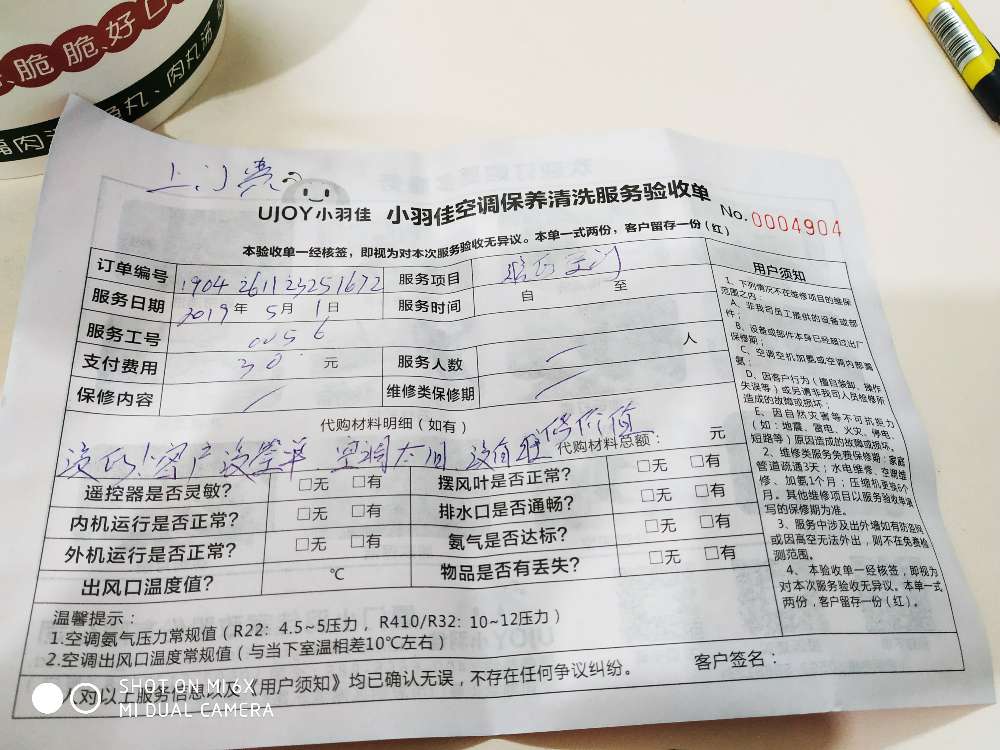 脆 脆 好 口
丸、肉丸汤
上门费
UJOY小羽佳 小羽佳空调保养清洗服务验收单 No. 0004904
本验收单一经核签，即视为对本次服务验收无异议。本单一式两份，客户留存一份（红）
订单编号 1904 261123251672 服务项目
服务日期 2019年 5月 1日 服务时间 自 至
服务工号 0056
支付费用 30 元 服务人数 人
保修内容 维修类保修期
代购材料明细（如有）
代购材料总额： 元
遥控器是否灵敏？ □无 □有 摆风叶是否正常？ □无 □有
内机运行是否正常？ □无 □有 排水口是否通畅？ □无 □有
外机运行是否正常？ □无 □有 氨气是否达标？ □无 □有
出风口温度值？ ℃ 物品是否有丢失？ □无 □有
用户须知
1、下列情况不在维修项目的维保
范围之内：
A、非我司员工提供的设备或部
件；
B、设备或部件本身已经超过出厂
保修期；
C、空调空机加氨或空调内部漏
氨；
D、因客户行为（擅自装卸、操作
失误等）或另请非我司人员检修所
造成的故障或损坏；
E、因自然灾害等不可抗拒力
（如：地震、雷电、火灾、停电、
短路等）原因造成的故障或损坏。
2、维修类服务免费保修期：家庭
管道疏通3天；水电维修、空调维
修、加氨1个月；压缩机更换6个
月。其他维修项目以服务验收单填
写的保修期为准。
3、服务中涉及出外墙如有防盗网
或因高空无法外出，则不在免费检
测范围。
4、本验收单一经核签，即视为
对本次服务验收无异议。本单一式
两份，客户留存一份（红）。
温馨提示：
1.空调氨气压力常规值（R22: 4.5~5压力，R410/R32: 10~12压力）
2.空调出风口温度常规值（与当下室温相差10℃左右）
人对以上服务信息以及《用户须知》均已确认无误，不存在任何争议纠纷。 客户签名：
SHOT ON MI 6X
MI DUAL CAMERA